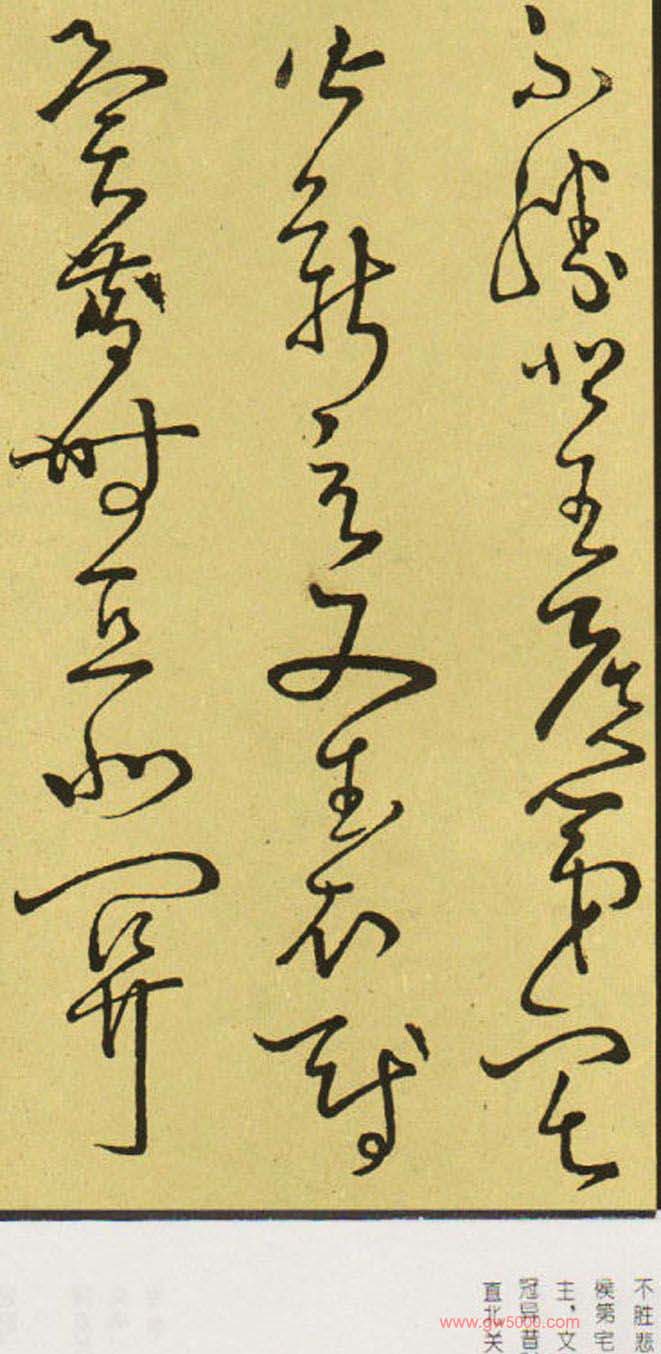 不勝悲王侯第宅
皆新主文武衣冠
異昔時直北關
不胜悲
侯第宅
主,文
冠异昔
直北关
www.gw5000.com